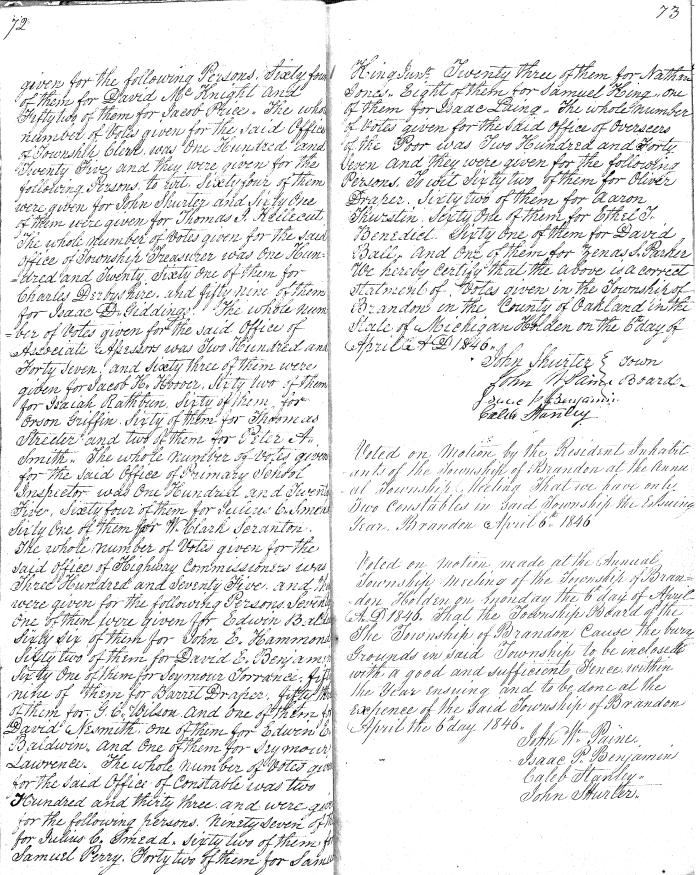 72
given for the following Persons. Sixty four
of them for David McKnight And
Fifty two of them for Jacob Price. The whole
number of Votes given for the said Office
of Township Clerk was One Hundred and
Twenty Five and they were given for the
following Persons, to wit. Sixty four of them
were given for John Shurter and Sixty One
of them were given for Thomas J.
The whole number of Votes given for the said
office of Township Treasurer was One Hun-
-dred and Twenty. Sixty One of them for
Charles Derbyshire. and fifty nine of them
for Isaac D. Giddings. The whole num
=ber of Votes given for the said Office of
Associate Assessors was Two Hundred and
Forty Seven, and Sixty three of them were
given for Jacob H. Hoover. Sixty two of them
for Isaiah Rathbun. Sixty of them for
Orson Griffin. Sixty of them for Thomas
Streeter and two of them for Peter A.
Smith. The whole number of Votes given
for the said Office of Primary School
Inspector was One Hundred and Twenty
Five, Sixty four of them for Julius C. Smead
Sixty One of them for W. Clark Scranton.
The whole number of Votes given for the
said Office of Highway Commissioners was
Three Hundred and Seventy Five. and
were given for the following Persons Seventy
One of them were given for Edwin
Sixty Six of them for John E. Hammond
Sixty two of them for David E. Benjamin
Sixty One of them for Seymour Torrance. fifty
nine of them for Barret Draper. fifty
of them for G. C. Wilson. And One of them for
David Nesmith. One of them for Edwin E.
Baldwin. and One of them for Seymour
Lawrence. The whole number of Votes given
for the said Office of Constable was two
Hundred and thirty three. and were given
for the following persons. Ninety seven of
for Julius C. Smead. Sixty two of them for
Samuel Perry. Forty two of them for Samuel
73
King Junr. Twenty three of them for Nathan
Jones. Eight of them for Samuel King. one
of them for Isaac Laing. The whole Number
of Votes given for the said Office of Overseers
of the Poor was Two Hundred and Forty
Seven And they were given for the following
Persons. To wit Sixty two of them for Oliver
Draper. Sixty two of them for Aaron
Thurstin. Sixty One of them for Ethel J.
Benedict. Sixty One of them for David
Ball. And One of them for Zenas S. Parker
We hereby certify that the above is a correct
Statment of Votes given in the Township of
Brandon in the County of Oakland in the
State of Michigan Holden on the 6 day of
April A D 1846.
John Shurter } Town
John W Paine Board
Isaac P Benjamin
Caleb Stanley
Voted on Motion by the Resident Inhabit
ants of the Township of Brandon at the Annu
al Township Meeting That we have only
Two Constables in Said Township the Ensuing
Year. Brandon April 6th 1846
Voted on Motion made at the Annual
Township meeting of the Township of Bran-
don Holden on Monday the 6th day of April
A.D 1846. That the Township Board of the
The Township of Brandon Cause the bury
Grounds in said Township to be inclosed
with a good and sufficient Fence within
the Year ensuing and to be done at the
Expence of the Said Township of Brandon
April the 6th day 1846.
John W. Paine.
Isaac P. Benjamin
Caleb Stanley.
John Shurter.